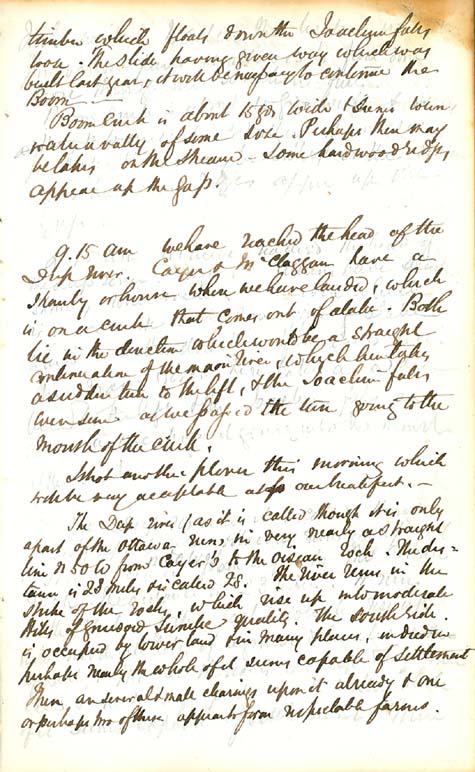 timber which floats down the Joachim falls
took. The slide having given way which was
built last year, it will be necessary to continue the
Boom —
Boom Creek is about 15 yds wide & seems to
water a valley of some size. Perhaps there may
be lakes on the stream – some hardwood ridges
appear up the gap.
9.15 am we have reached the head of the
Deep River. Cayer & McClaggan have a
shanty or house where we have landed, which
is on a creek that comes out of a lake. Both
lie in the direction which would be a straight
continuation of the main River, which here takes
a sudden turn to the left, & the Joachim falls
were seen as we passed the turn going to the
mouth of the creek.
I shot another plover this morning which
will be very acceptable at our breakfast. —
The Deep River (as it is called though it is only
a part of the Ottawa runs in very nearly a straight
line N 50 W from Cayer's to the oiseau rock. The dis-
tance is 28 miles & is called 28. The River runs in the
strike of the rocks, which rise up into moderate
Hills of gneissoid quality. The south side
is occupied by lower land & in many places, indeed
perhaps nearly the whole of it seems capable of settlement
There are several small clearings upon it already & one
or perhaps two of these appear to form respectable farms.